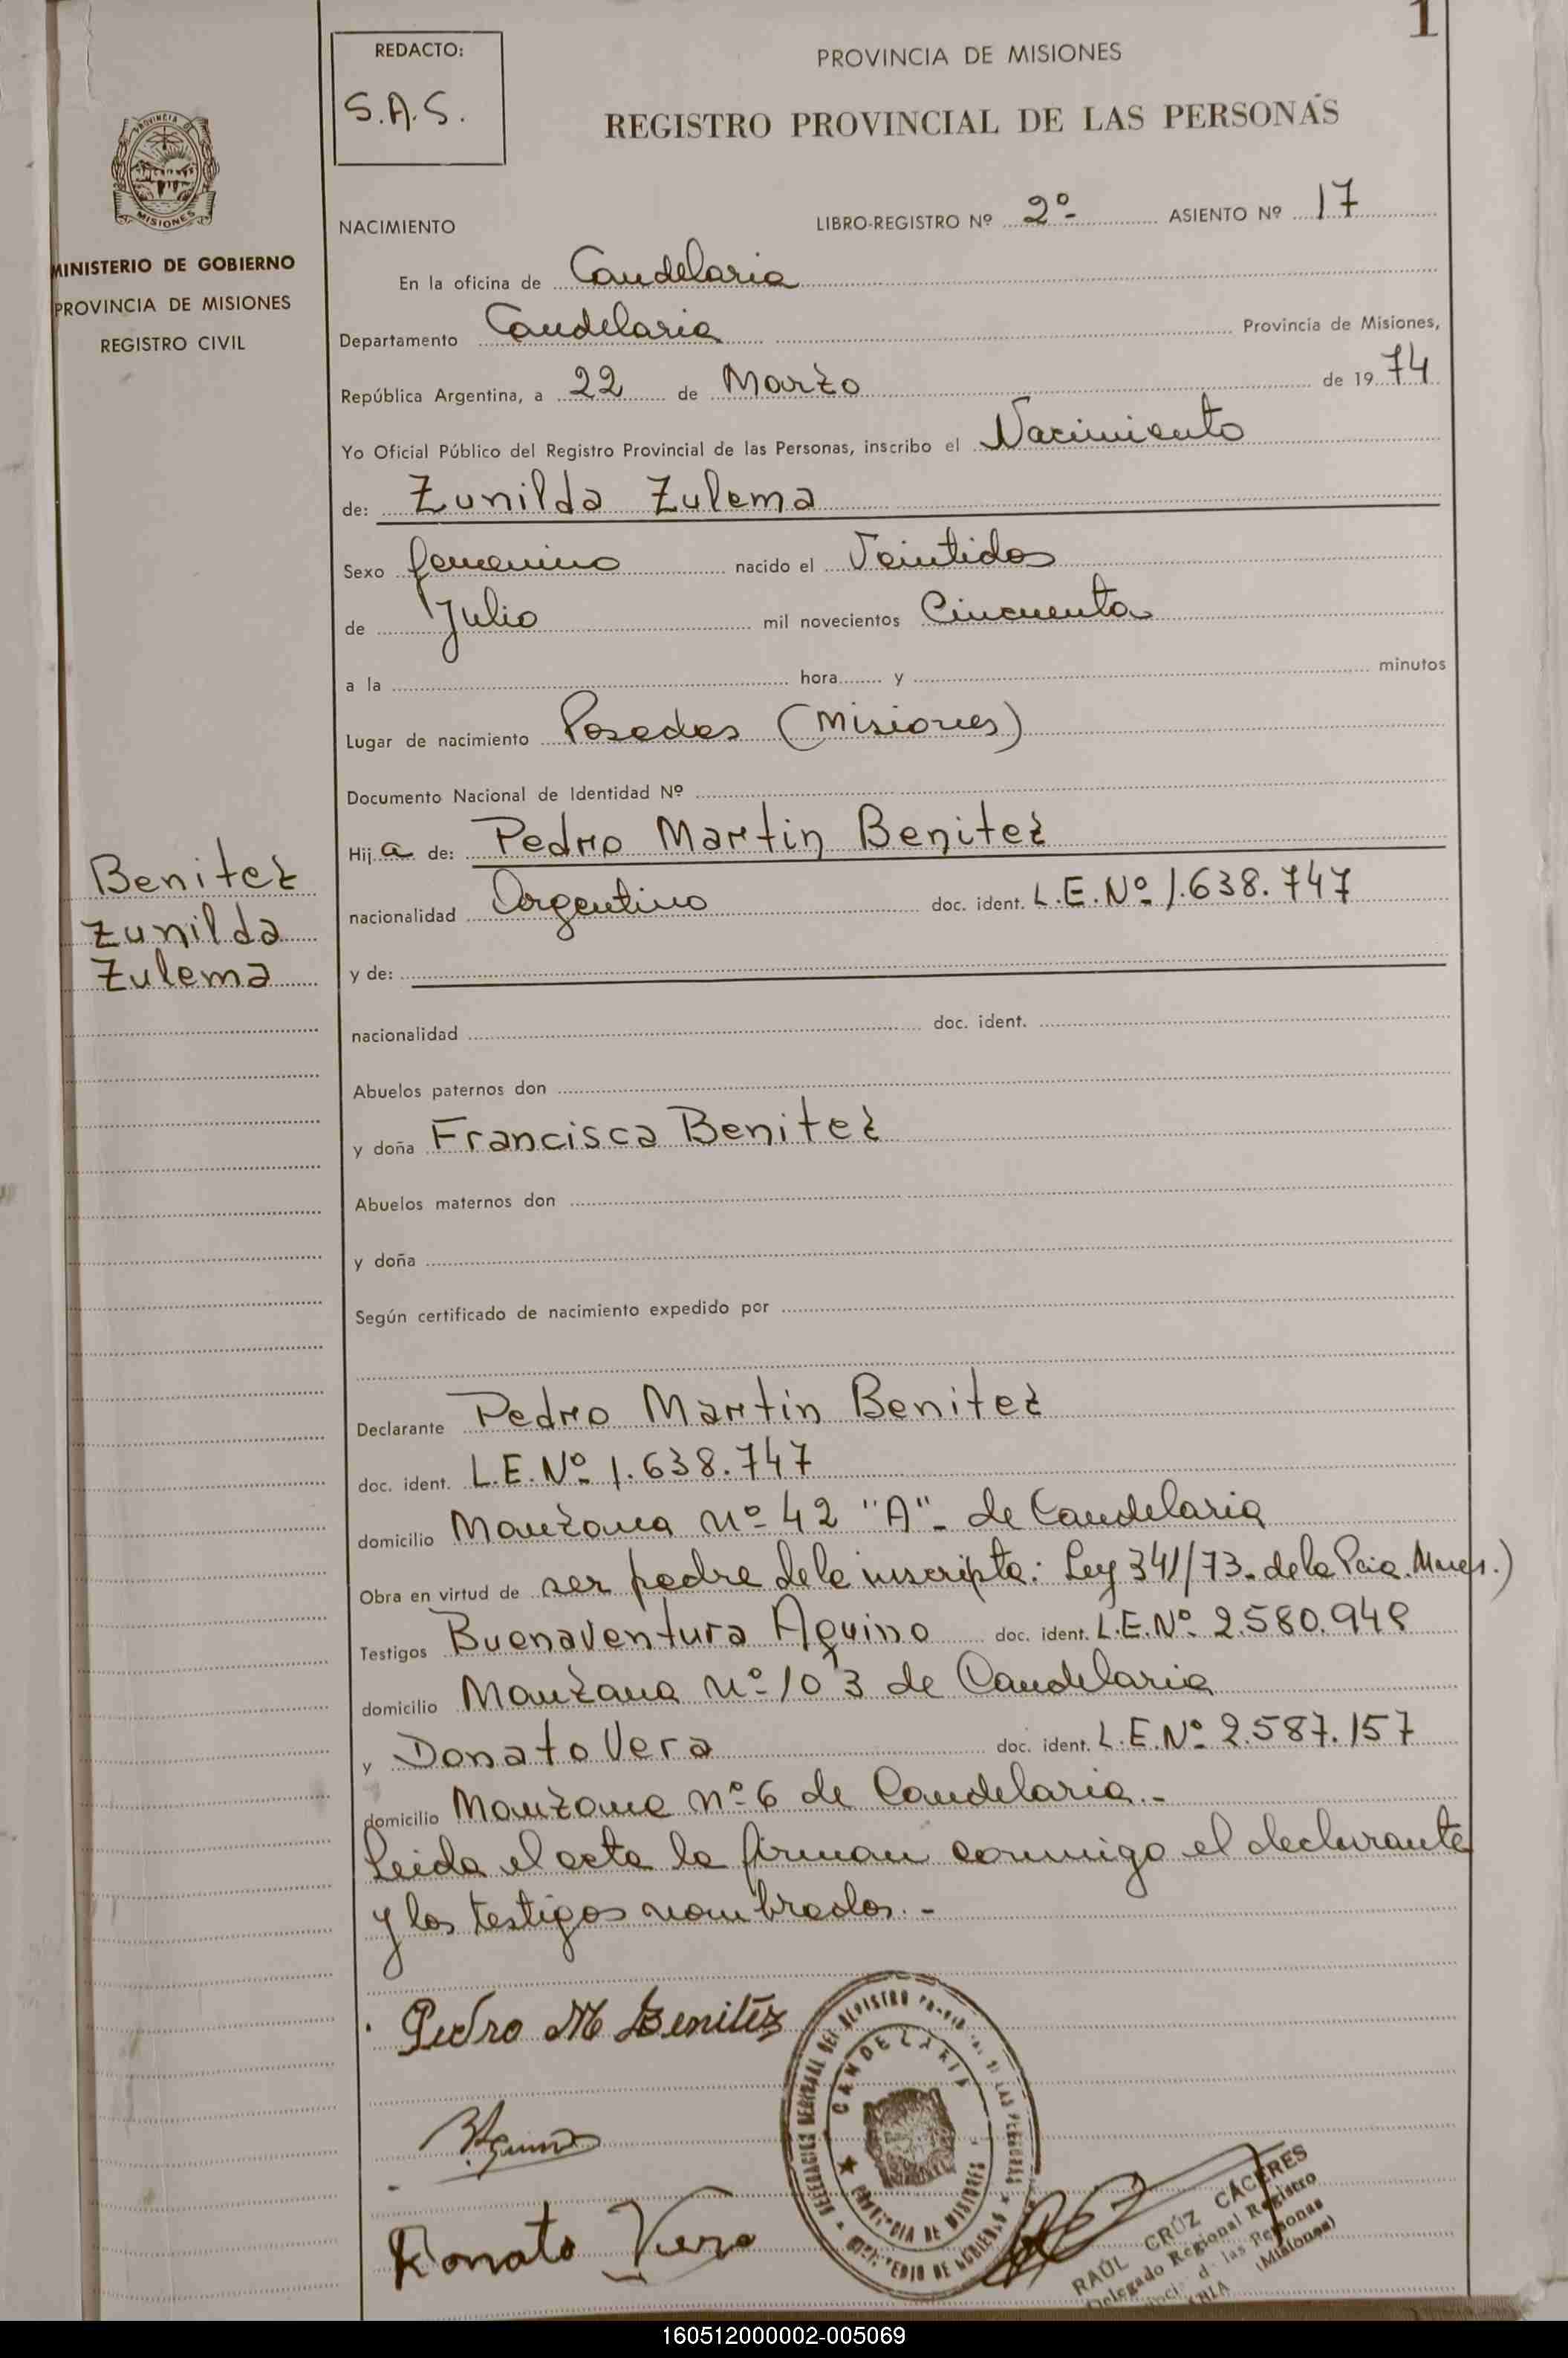 1
REDACTO:
S.A.S.
PROVINCIA DE MISIONES
REGISTRO PROVINCIAL DE LAS PERSONAS
MISIONES
MINISTERIO DE GOBIERNO
PROVINCIA DE MISIONES
REGISTRO CIVIL
NACIMIENTO LIBRO-REGISTRO Nº 2º ASIENTO Nº 17
En la oficina de Candelaria
Departamento Candelaria Provincia de Misiones,
República Argentina, a 22 de Marzo de 1974
Yo Oficial Público del Registro Provincial de las Personas, inscribo el Nacimiento
de: Zunilda Zulema
Sexo femenino nacido el Veintidos
de Julio mil novecientos Cincuenta
a la hora y minutos
Lugar de nacimiento Posadas (Misiones)
Documento Nacional de Identidad Nº
Hija de: Pedro Martin Benitez
nacionalidad Argentino doc. ident. L.E.Nº 1.638.747
Benitez
Zunilda
Zulema
y de:
nacionalidad doc. ident.
Abuelos paternos don
y doña Francisca Benitez
Abuelos maternos don
y doña
Según certificado de nacimiento expedido por
Declarante Pedro Martin Benitez
doc. ident. L.E.Nº 1.638.747
domicilio Manzana nº 42 "A"- de Candelaria
Obra en virtud de ser padre de la inscripta: Ley 341/73. de la Pcia. Mnes.)
Testigos Buenaventura Aquino doc. ident. L.E.Nº 2.580.949
domicilio Manzana nº 103 de Candelaria
y Donato Vera doc. ident. L.E.Nº 2.587.157
domicilio Manzana nº 6 de Candelaria.-
Leida el acta la firman conmigo el declarante
y los testigos nombrados.-
Pedro M Benitez
Donato Vera
CANDELARIA
PROVINCIA DE MISIONES
RAÚL CRÚZ CÁCERES
Delegado Regional Registro
las Personas
(Misiones)
160512000002-005069